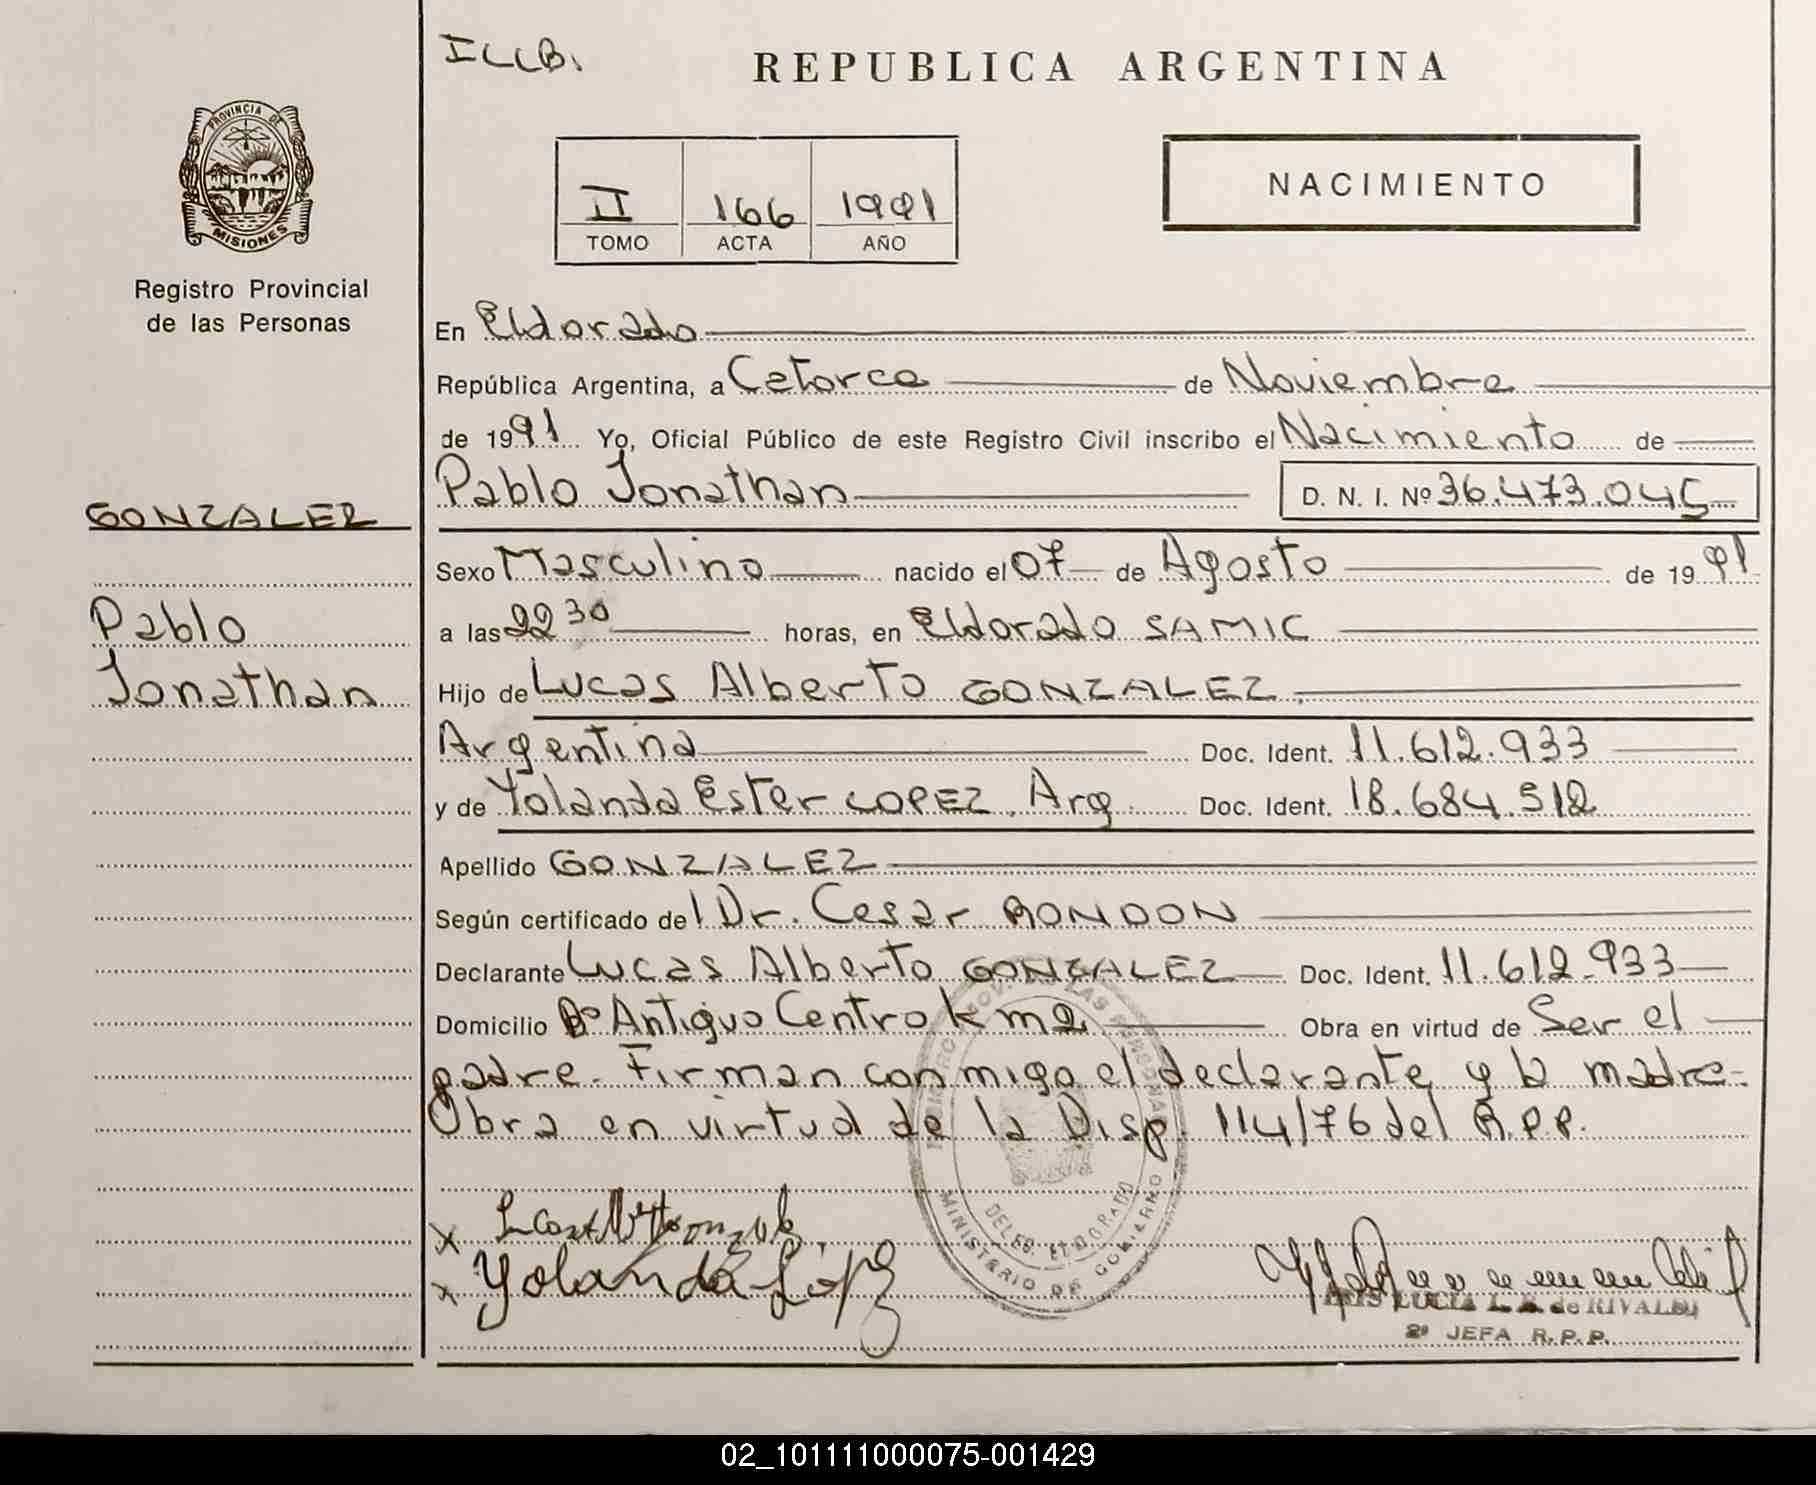 ILLB.
REPUBLICA ARGENTINA
PROVINCIA DE
MISIONES
Registro Provincial
de las Personas
II 166 1991
TOMO ACTA AÑO
NACIMIENTO
En Eldorado
República Argentina, a Catorce de Noviembre
de 1991 Yo, Oficial Público de este Registro Civil inscribo el Nacimiento de
Pablo Jonathan D. N. I. Nº 36.473.045
GONZALEZ
Pablo
Jonathan
Sexo Masculino nacido el 07 de Agosto de 1991
a las 22 30 horas, en Eldorado SAMIC
Hijo de Lucas Alberto GONZALEZ
Argentina Doc. Ident. 11.612.933
y de Yolanda Ester LOPEZ, Arg. Doc. Ident. 18.684.512
Apellido GONZALEZ
Según certificado del Dr. Cesar RONDON
Declarante Lucas Alberto GONZALEZ Doc. Ident. 11.612.933
Domicilio Bº Antiguo Centro km 2 Obra en virtud de Ser el
padre. Firman conmigo el declarante y la madre.
Obra en virtud de la Disp. 114/76 del R.P.P.
MINISTERIO DE GOBIERNO
DELEG. ELDORADO
x
x Yolanda López
LUCIA L. de RIVALDI
2º JEFA R.P.P.
02_101111000075-001429